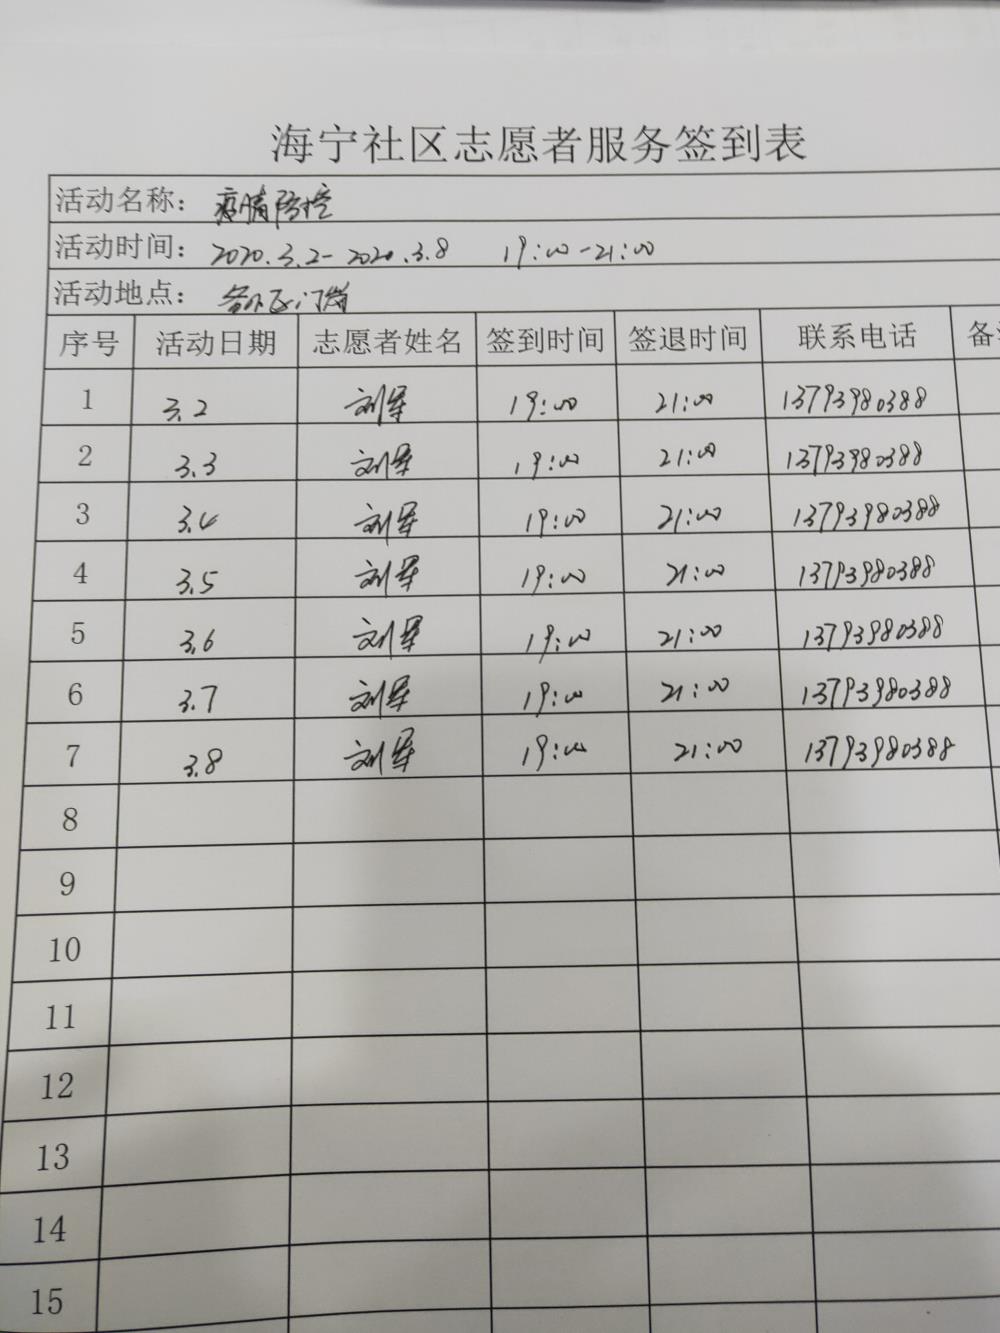 海宁社区志愿者服务签到表
活动名称: 疫情防控
活动时间: 2020.3.2-2020.3.8 19:00-21:00
活动地点: 各小区门岗
序号 活动日期 志愿者姓名 签到时间 签退时间 联系电话 备
1 3.2 刘军 19:00 21:00 13793980388
2 3.3 刘军 19:00 21:00 13793980388
3 3.4 刘军 19:00 21:00 13793980388
4 3.5 刘军 19:00 21:00 13793980388
5 3.6 刘军 19:00 21:00 13793980388
6 3.7 刘军 19:00 21:00 13793980388
7 3.8 刘军 19:00 21:00 13793980388
8
9
10
11
12
13
14
15